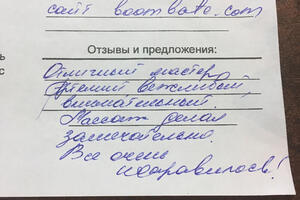 сайт boombate.com
Отзывы и предложения:
Отличный мастер
Артемий вежливый,
внимательный.
Массаж делал
замечательно.
Все очень
понравилось!